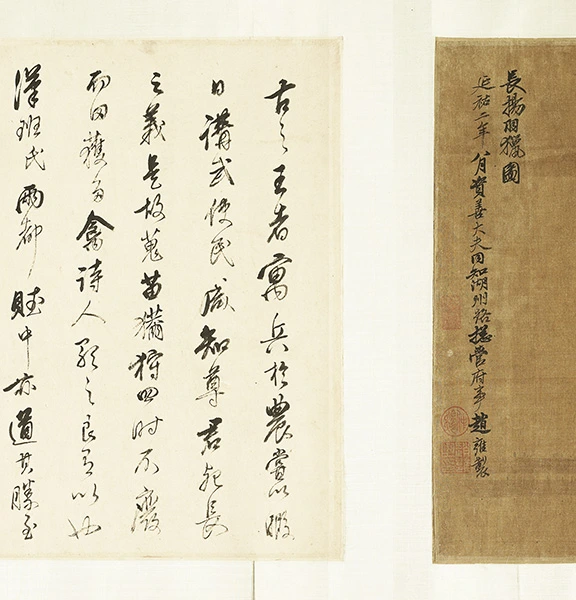 長揚羽獵圖
延祐二年八月資善大夫同知湖州路總管府事趙雍製
古之王者寓兵於農當以暇
日講武使民咸知尊君死長
之義是故蒐苗獮狩四時不廢
而田獲多禽詩人歌之良有以也
漢班氏兩都賦中亦道其勝至